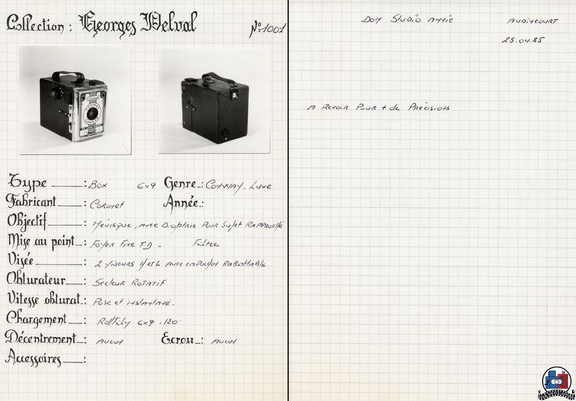 Collection : Georges Delval N° 1001
Type : Box 6x9 Genre : Conway. Luxe
Fabricant : Coronet Année :
Objectif : Ménisque, avec Dioptrie Pour Sujet Rapproché
Mise au point : Foyer Fixe Filtre
Visée : 2 Viseurs H et L avec capuchon Rabattable
Obturateur : Secteur Rotatif
Vitesse obturat. : Pose et instantané.
Chargement : Rollfilm 6x9 - 120
Décentrement : aucun Ecrou : aucun
Accessoires :
Don Studio Audincourt
25.04.85
A Revoir Pour + de Précisions